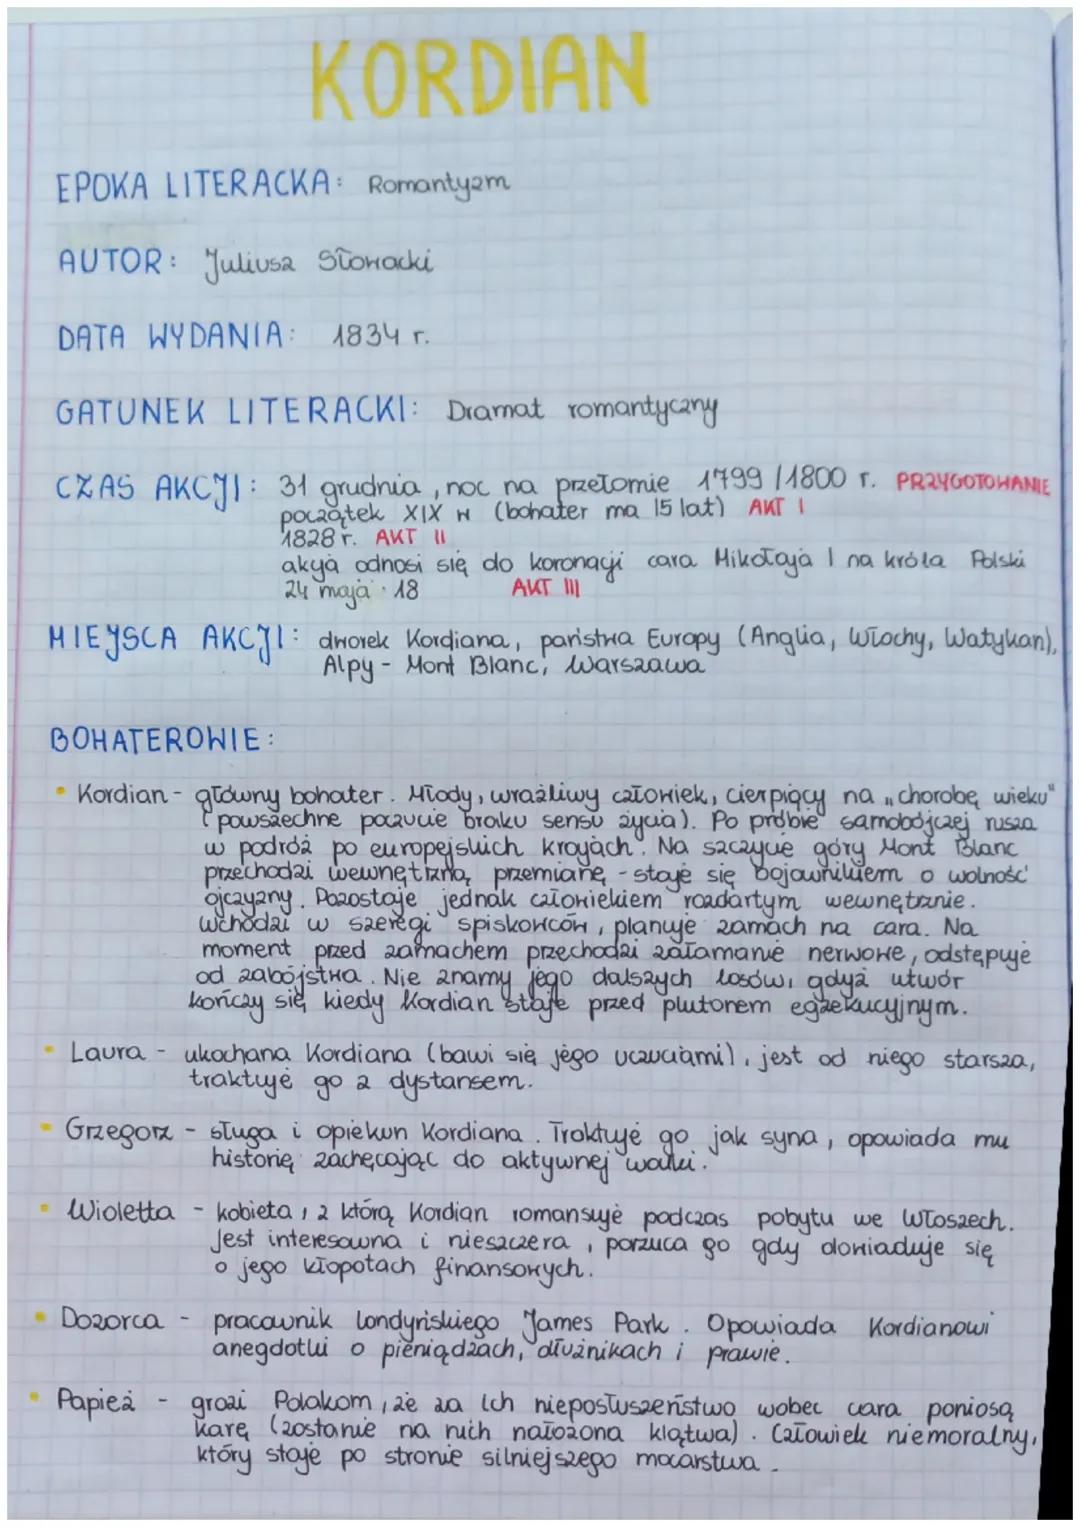 KORDIAN
EPOKA LITERACKA: Romantyzm
AUTOR: Juliusz Słowacki
DATA WYDANIA: 1834 r.
GATUNEK LITERACKI: Dramat romantyczny
CZAS AKCJI: 31 grudnia, noc na przełomie 1799/1800 r. PRZYGOTOWANIE
początek XIX w (bohater ma 15 lat) AKT I
1828 r. AKT II
akcja odnosi się do koronacji cara Mikołaja I na króla Polski
24 maja 18 AKT III
MIEJSCA AKCJI: dworek Kordiana, państwa Europy (Anglia, Włochy, Watykan),
Alpy - Mont Blanc, Warszawa
BOHATEROWIE:
• Kordian - główny bohater. Młody, wrażliwy człowiek, cierpiący na „chorobę wieku"
(powszechne poczucie braku sensu życia). Po próbie samobójczej rusza
w podróż po europejskich krajach. Na szczycie góry Mont Blanc
przechodzi wewnętrzną przemianę - staje się bojownikiem o wolność
ojczyzny. Pozostaje jednak człowiekiem rozdartym wewnętrznie.
Wchodzi w szeregi spiskowców, planuje zamach na cara. Na
moment przed zamachem przechodzi załamanie nerwowe, odstępuje
od zabójstwa. Nie znamy jego dalszych losów, gdyż utwór
kończy się, kiedy Kordian staje przed plutonem egzekucyjnym.
• Laura - ukochana Kordiana (bawi się jego uczuciami), jest od niego starsza,
traktuje go z dystansem.
• Grzegorz - sługa i opiekun Kordiana. Traktuje go jak syna, opowiada mu
historię zachęcając do aktywnej walki.
• Wioletta - kobieta, z którą Kordian romansuje podczas pobytu we Włoszech.
Jest interesowna i nieszczera, porzuca go gdy dowiaduje się
o jego kłopotach finansowych.
• Dozorca - pracownik londyńskiego James Park. Opowiada Kordianowi
anegdotki o pieniądzach, dłużnikach i prawie.
• Papież - grozi Polakom, że za ich nieposłuszeństwo wobec cara poniosą
karę (zostanie na nich nałożona klątwa). Człowiek niemoralny,
który staje po stronie silniejszego mocarstwa.